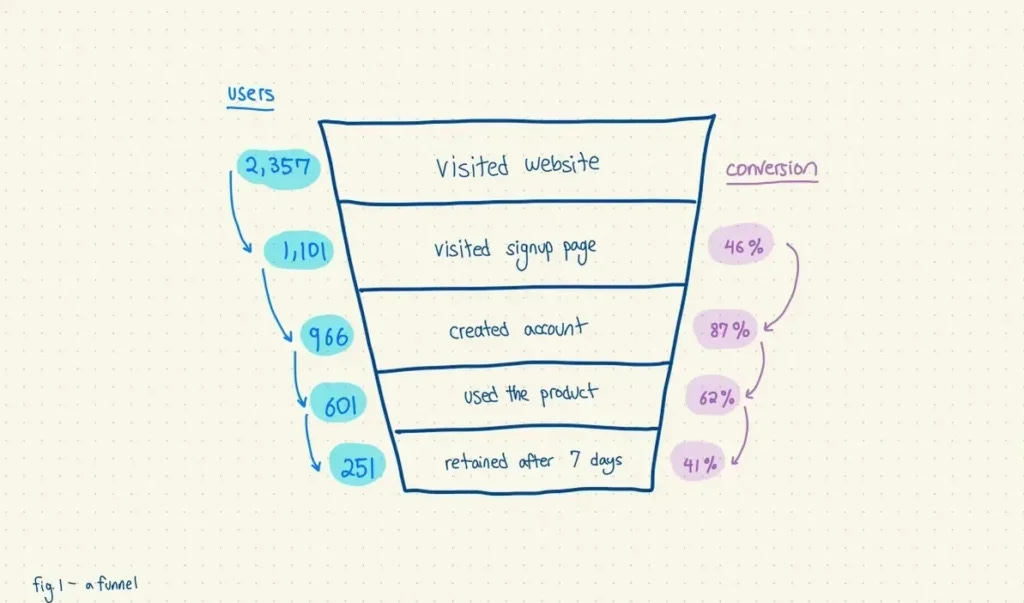 users
2,357
visited website
conversion
1,101
visited signup page
46%
966
created account
87%
601
used the product
62%
251
retained after 7 days
41%
fig.1 - a funnel